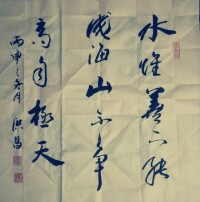 水惟善下能
成海山不争
高自極天
丙申之冬月 洪昌